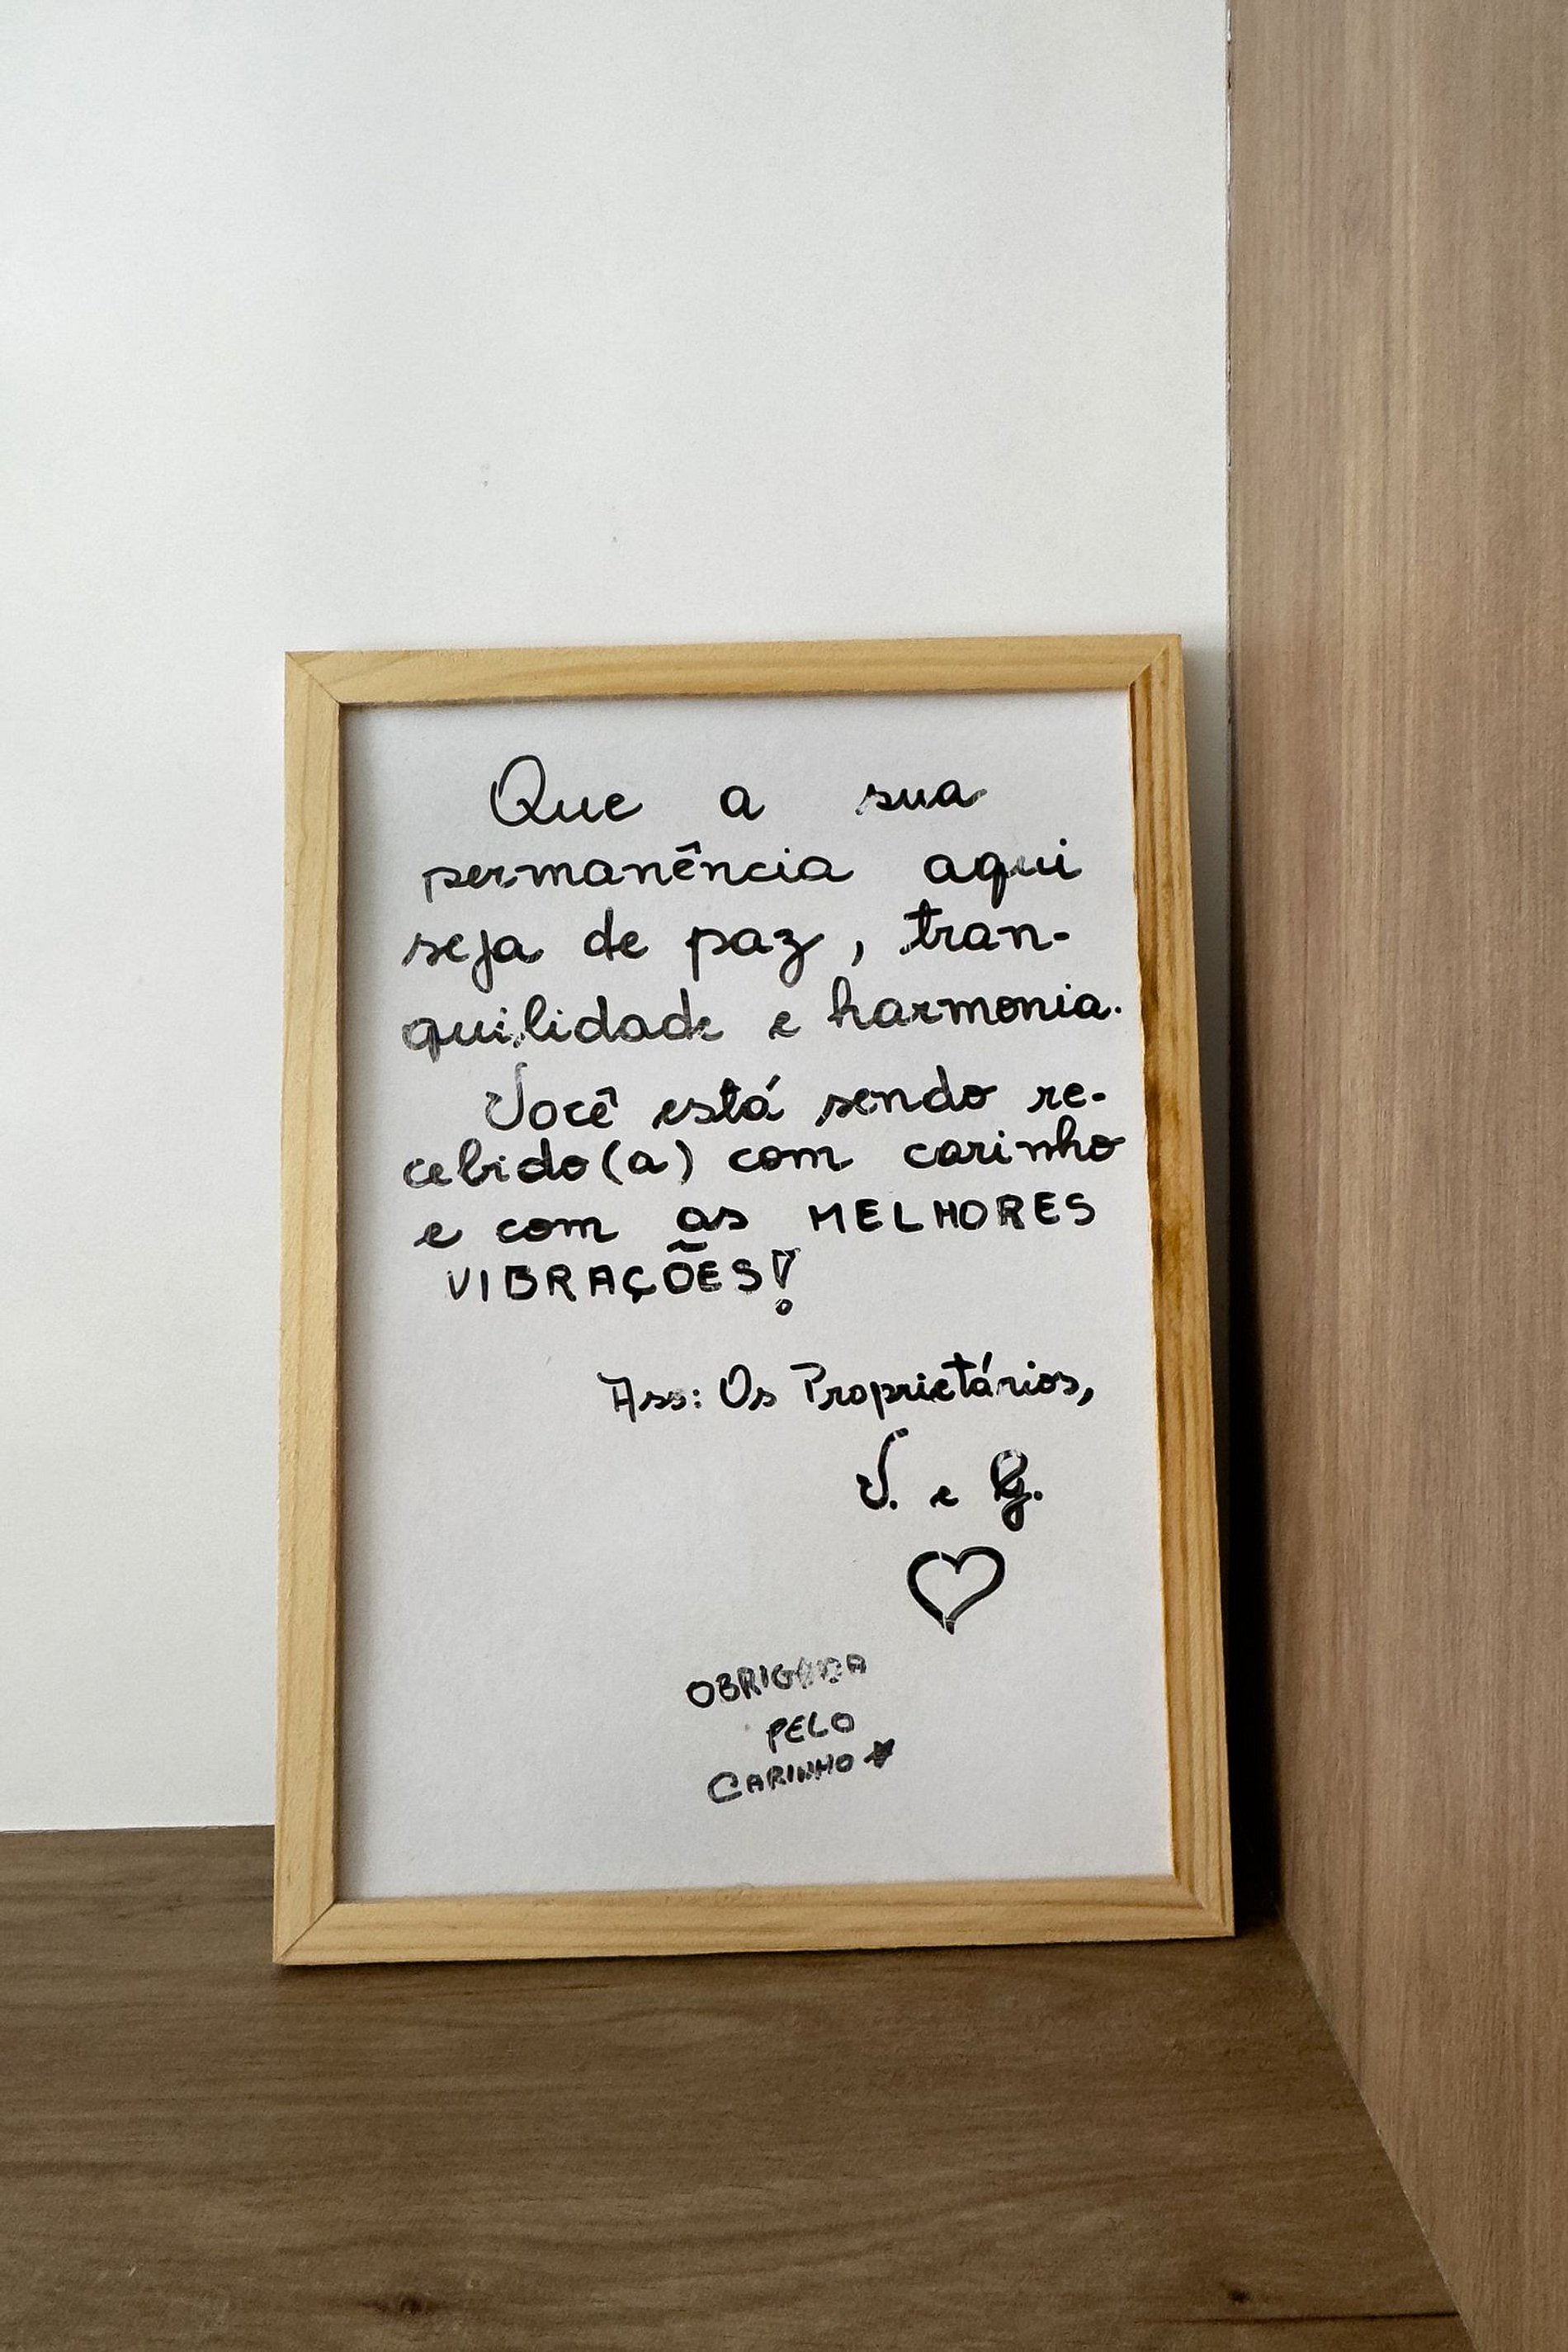 Que a sua
permanência aqui
seja de paz, tran-
quilidade e harmonia.
Você está sendo re-
cebido(a) com carinho
e com as MELHORES
VIBRAÇÕES!
Ass: Os Proprietários,
V. e G.
OBRIGADA
PELO
CARINHO